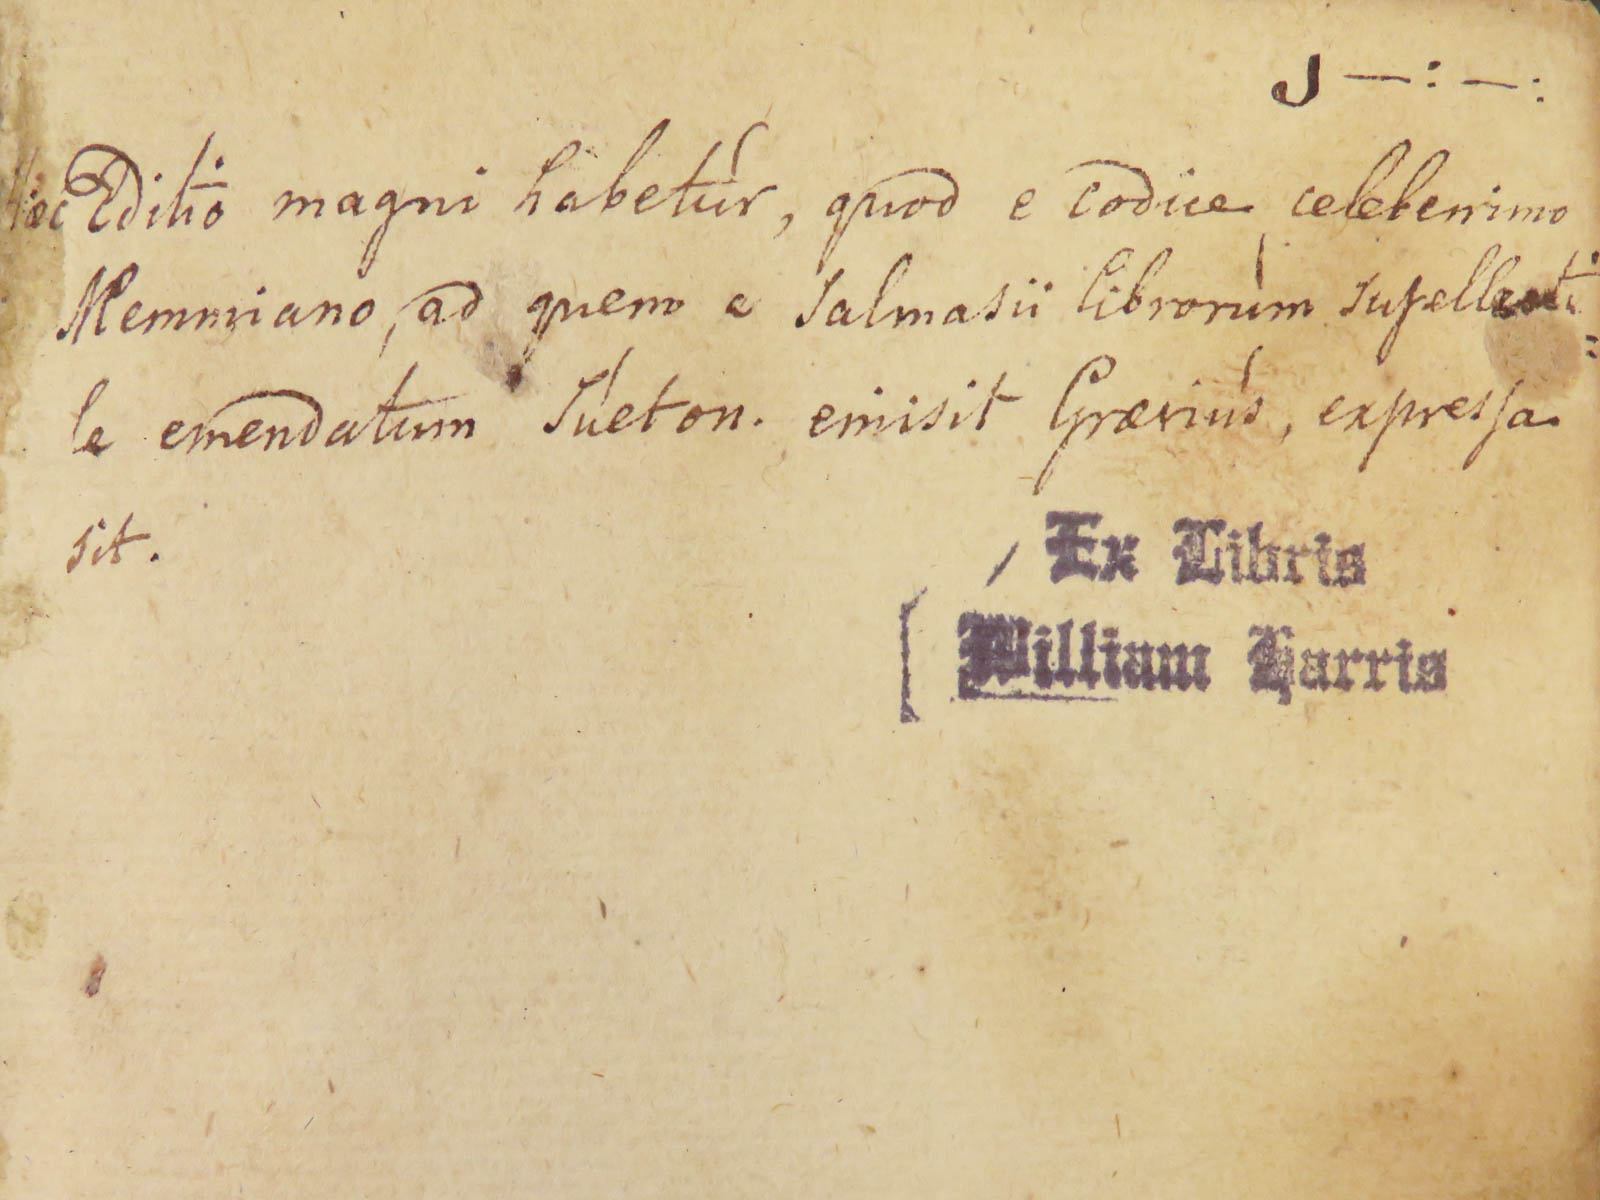 J —:—:
Hæc Editio magni habetur, quod e codice celeberrimo
Memmiano, ad quem e Salmasii librorum supellecti=
le emendatum Sueton. emisit Grævius, expressa
sit.
Ex Libris
William Harris